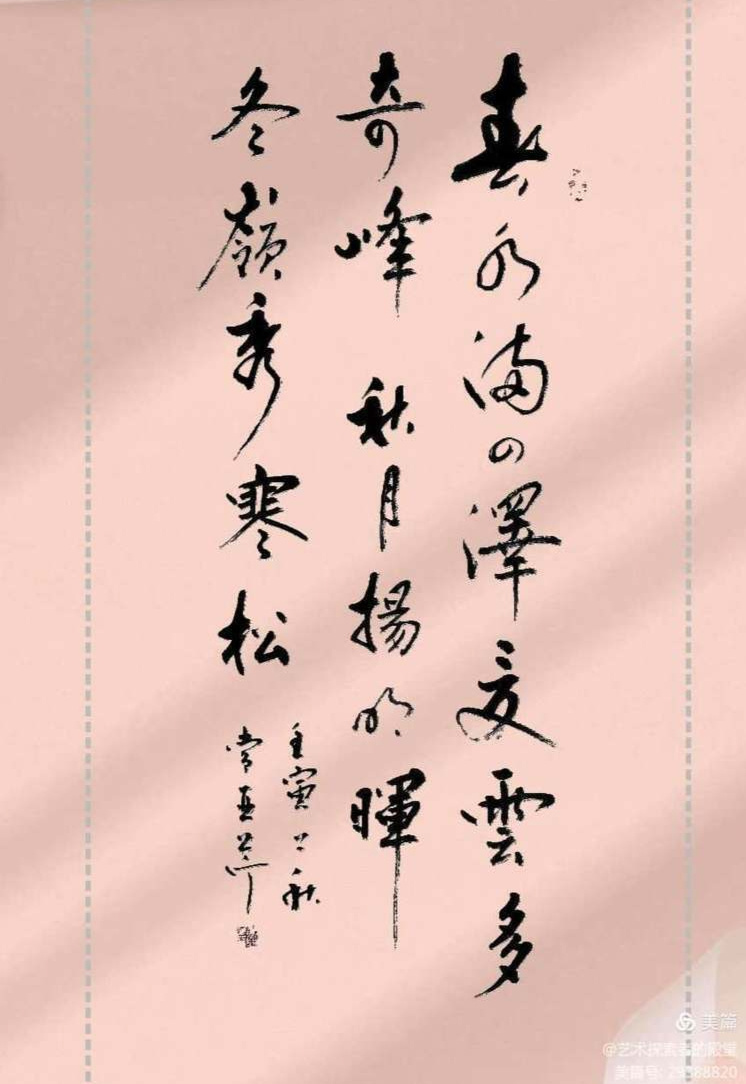 春水满四澤夏雲多
奇峰秋月揚明暉
冬嶺秀寒松
壬寅之秋
美篇
@艺术探索者的殿堂
美篇号: 29388820